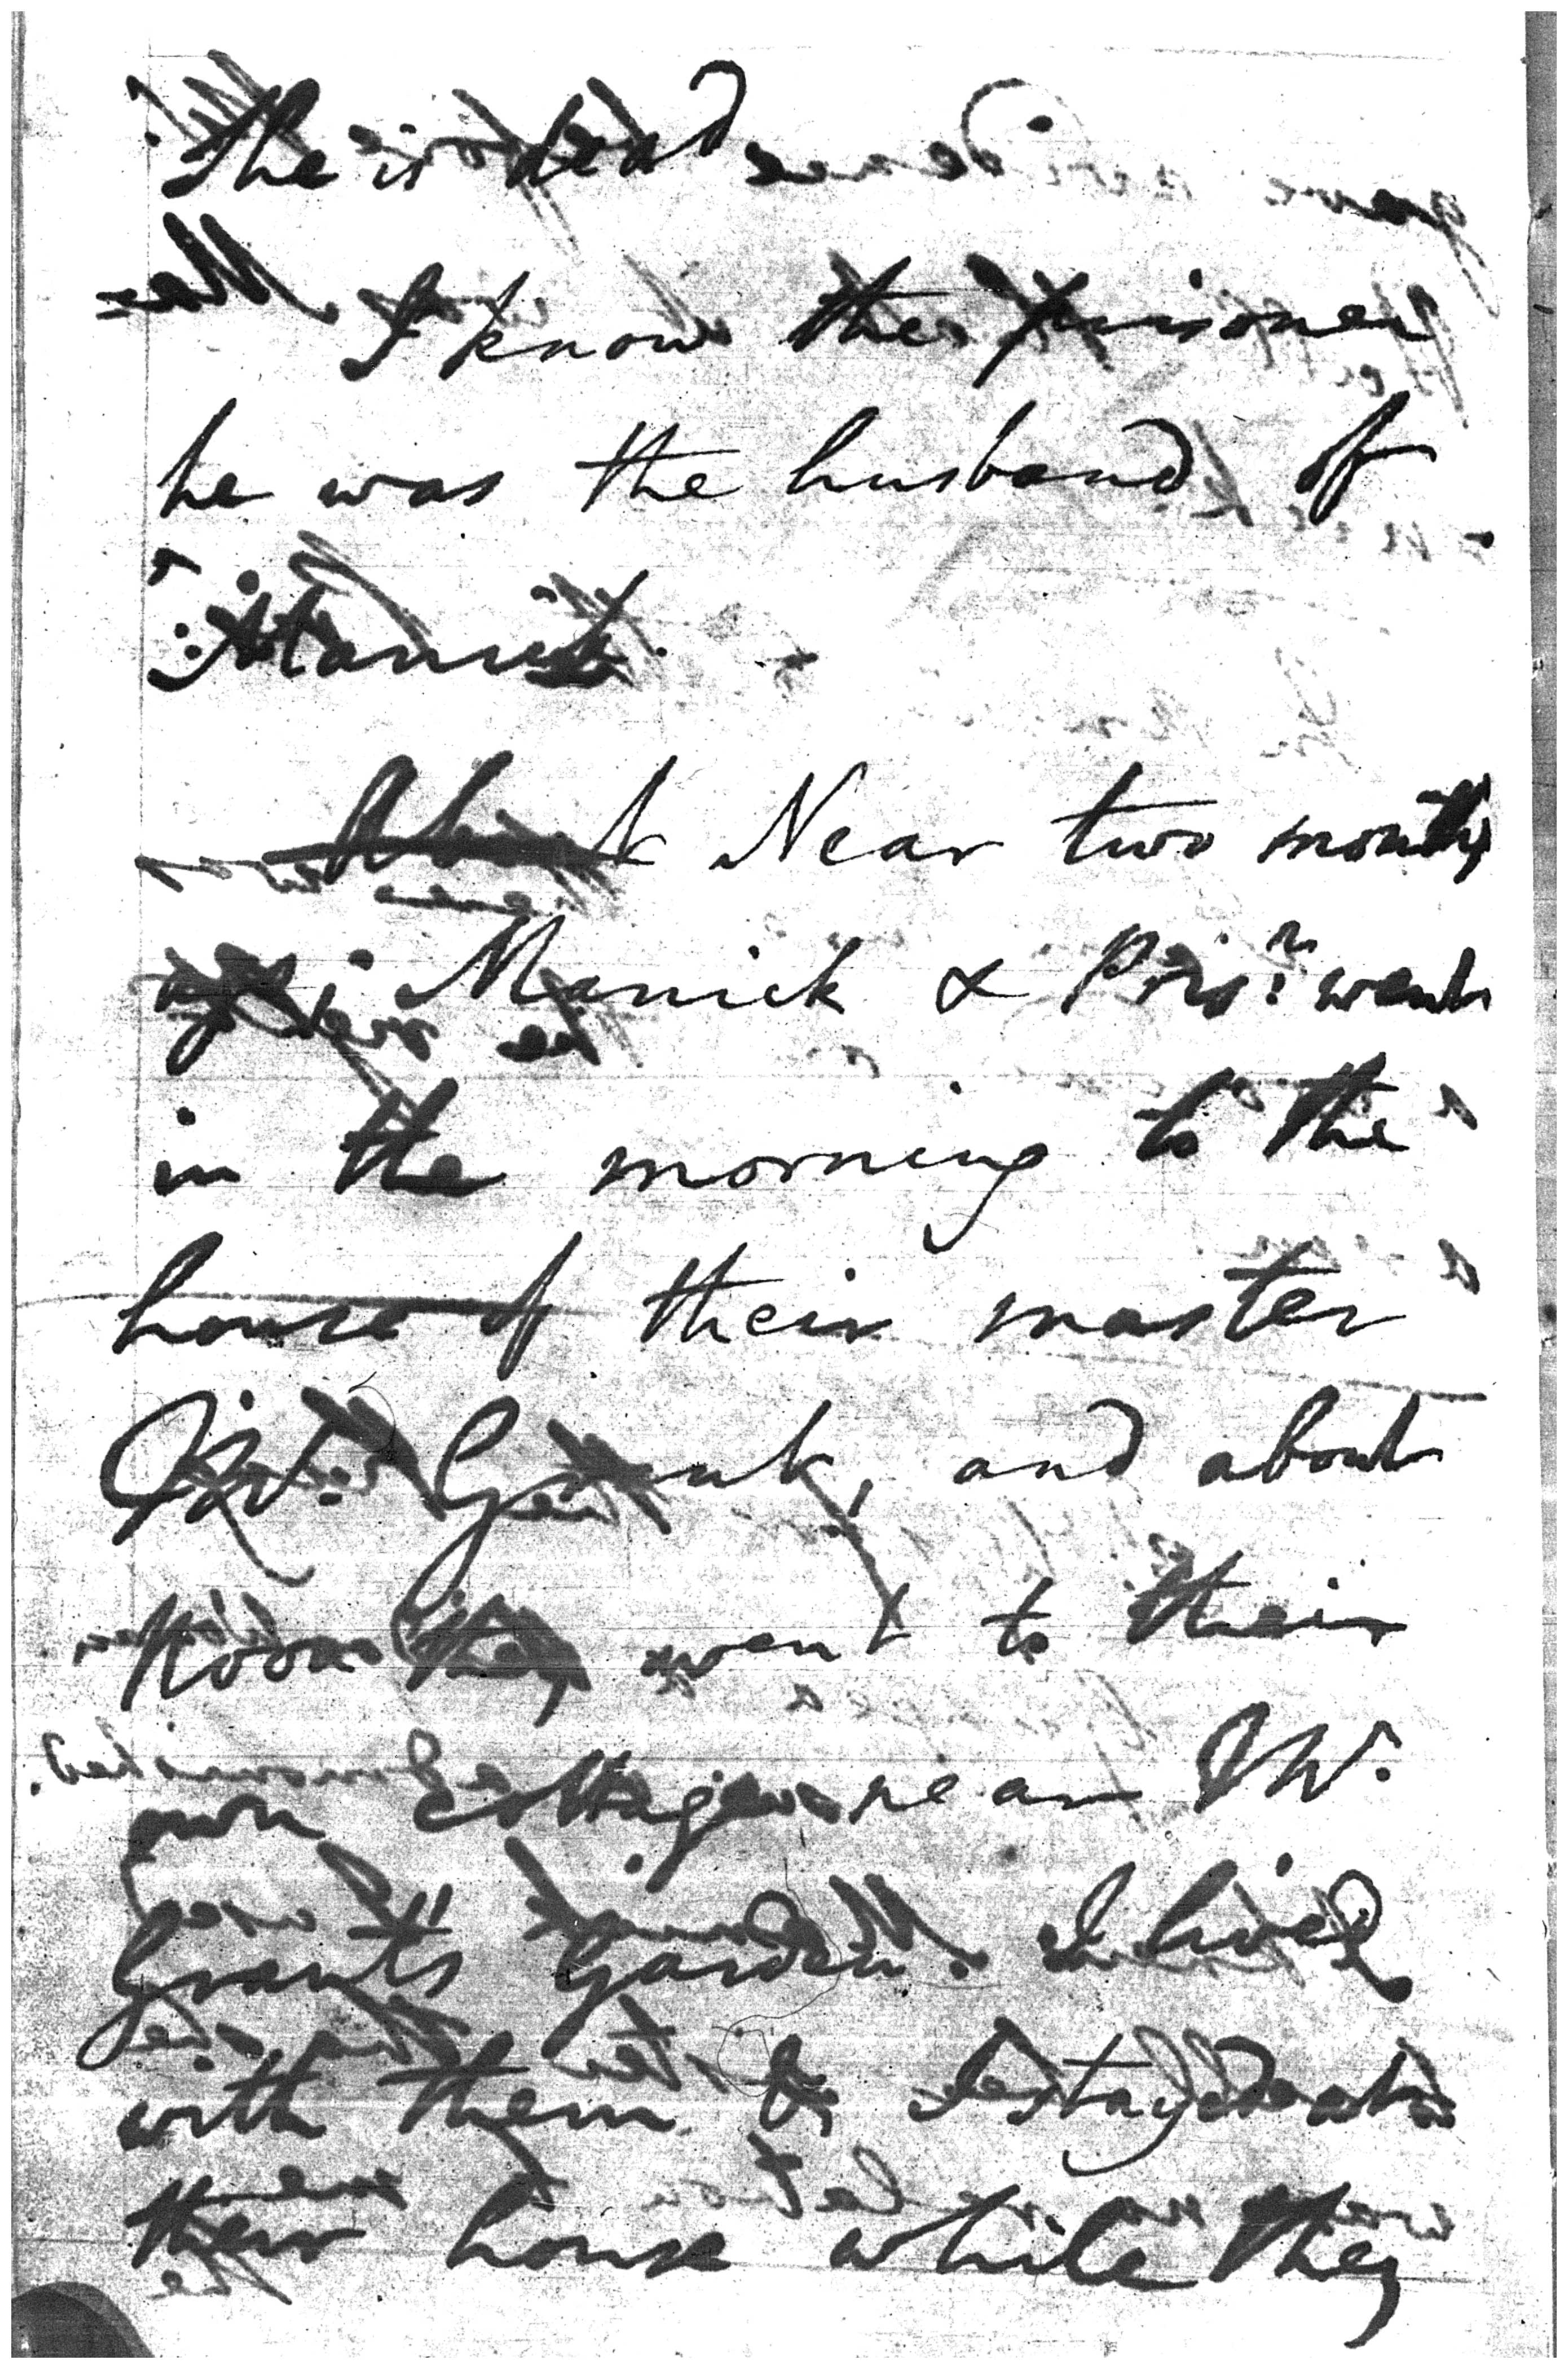 She is dead
I know the prisoner
he was the husband of
Manick.
About Near two months
ago; Manick & Pris.r went
in the morning to the
house of their master
Mr. Grant, and about
Noon they went to their
own Cottage near Mr.
Grants Garden. I lived
with them & I stayed at
their house while they